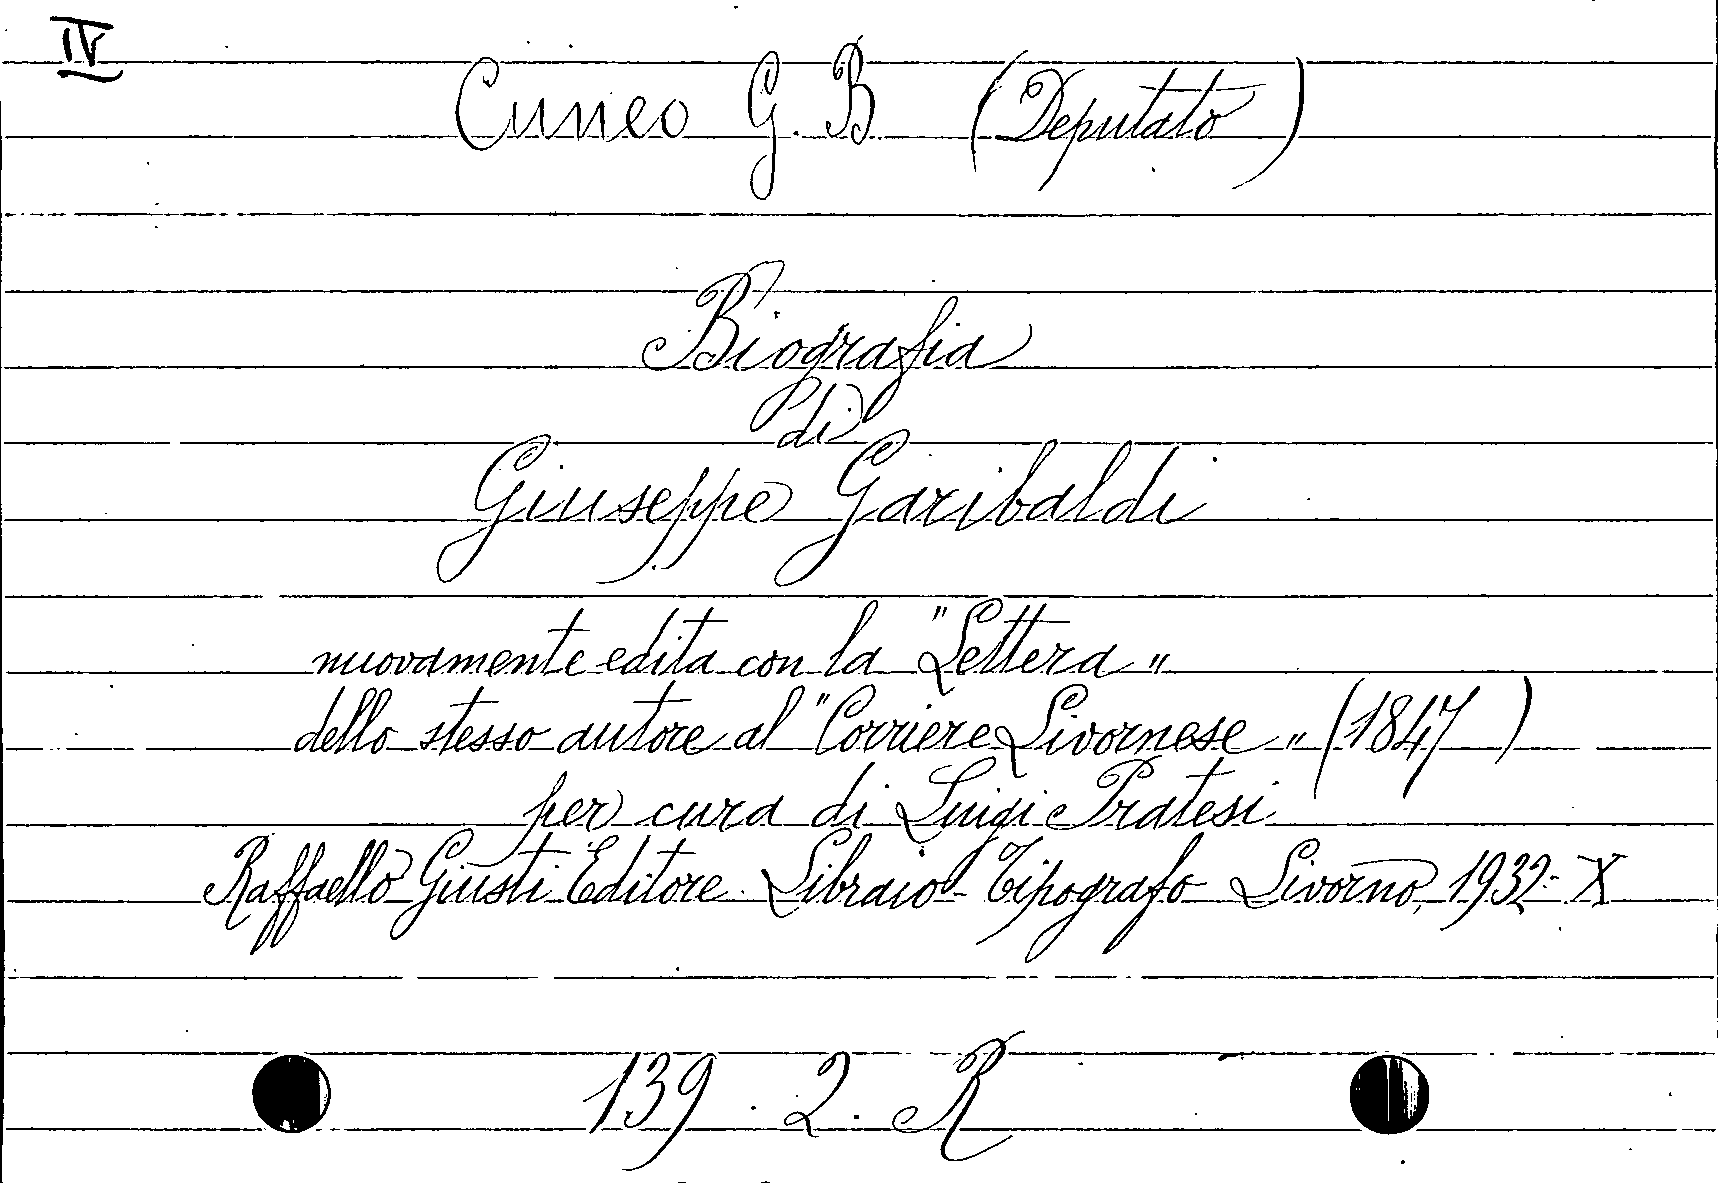 IV
Cuneo G. B. (Deputato)
Biografia
di
Giuseppe Garibaldi
nuovamente edita con la "Lettera"
dello stesso autore al "Corriere Livornese" (1847)
per cura di Luigi Pratesi
Raffaello Giusti Editore. Libraio-Tipografo Livorno, 1932-X
139. 2. R